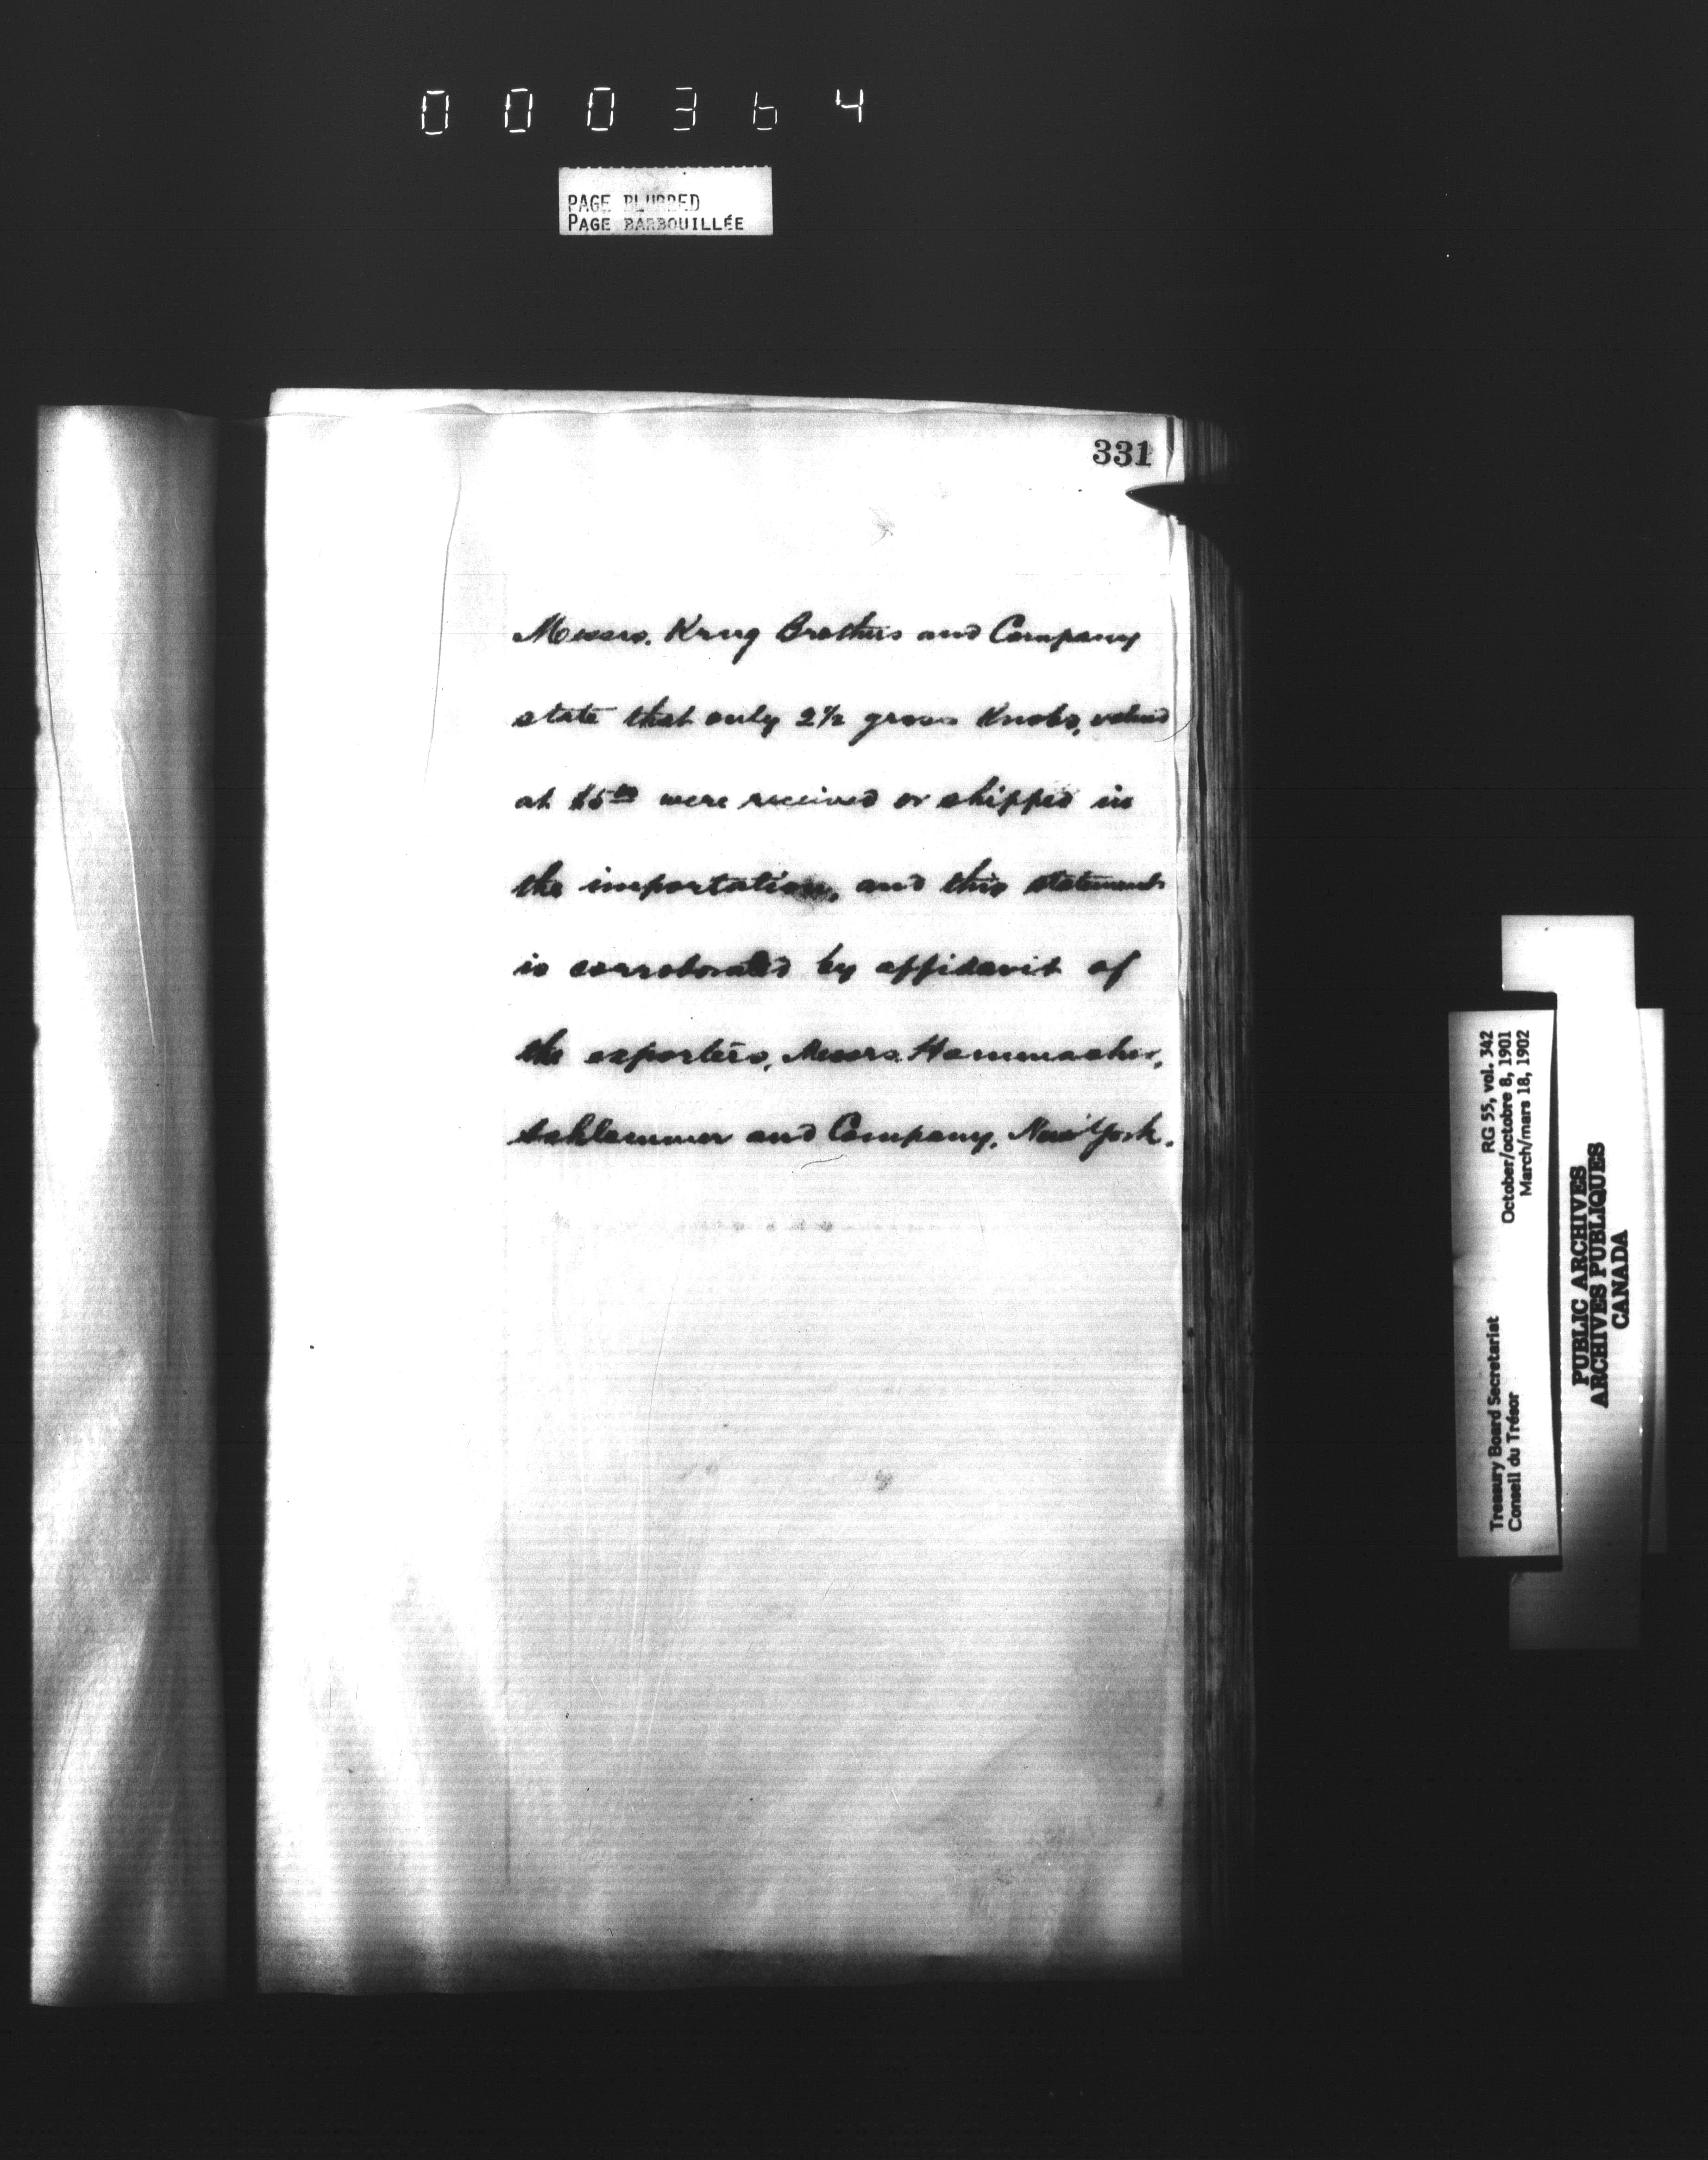 000364
PAGE BLURRED
PAGE BARBOUILLÉE
331
Messrs. Krug Brothers and Company
state that only 2½ gross Knobs, valued
at $5 00 were received or shipped in
the importation, and this statement
is corroborated by affidavit of
the exporters, Messrs. Hammacher,
Schlemmer and Company, New York.
RG 55, vol. 342
October/octobre 8, 1901
March/mars 18, 1902
Treasury Board Secretariat
Conseil du Trésor
PUBLIC ARCHIVES
ARCHIVES PUBLIQUES
CANADA